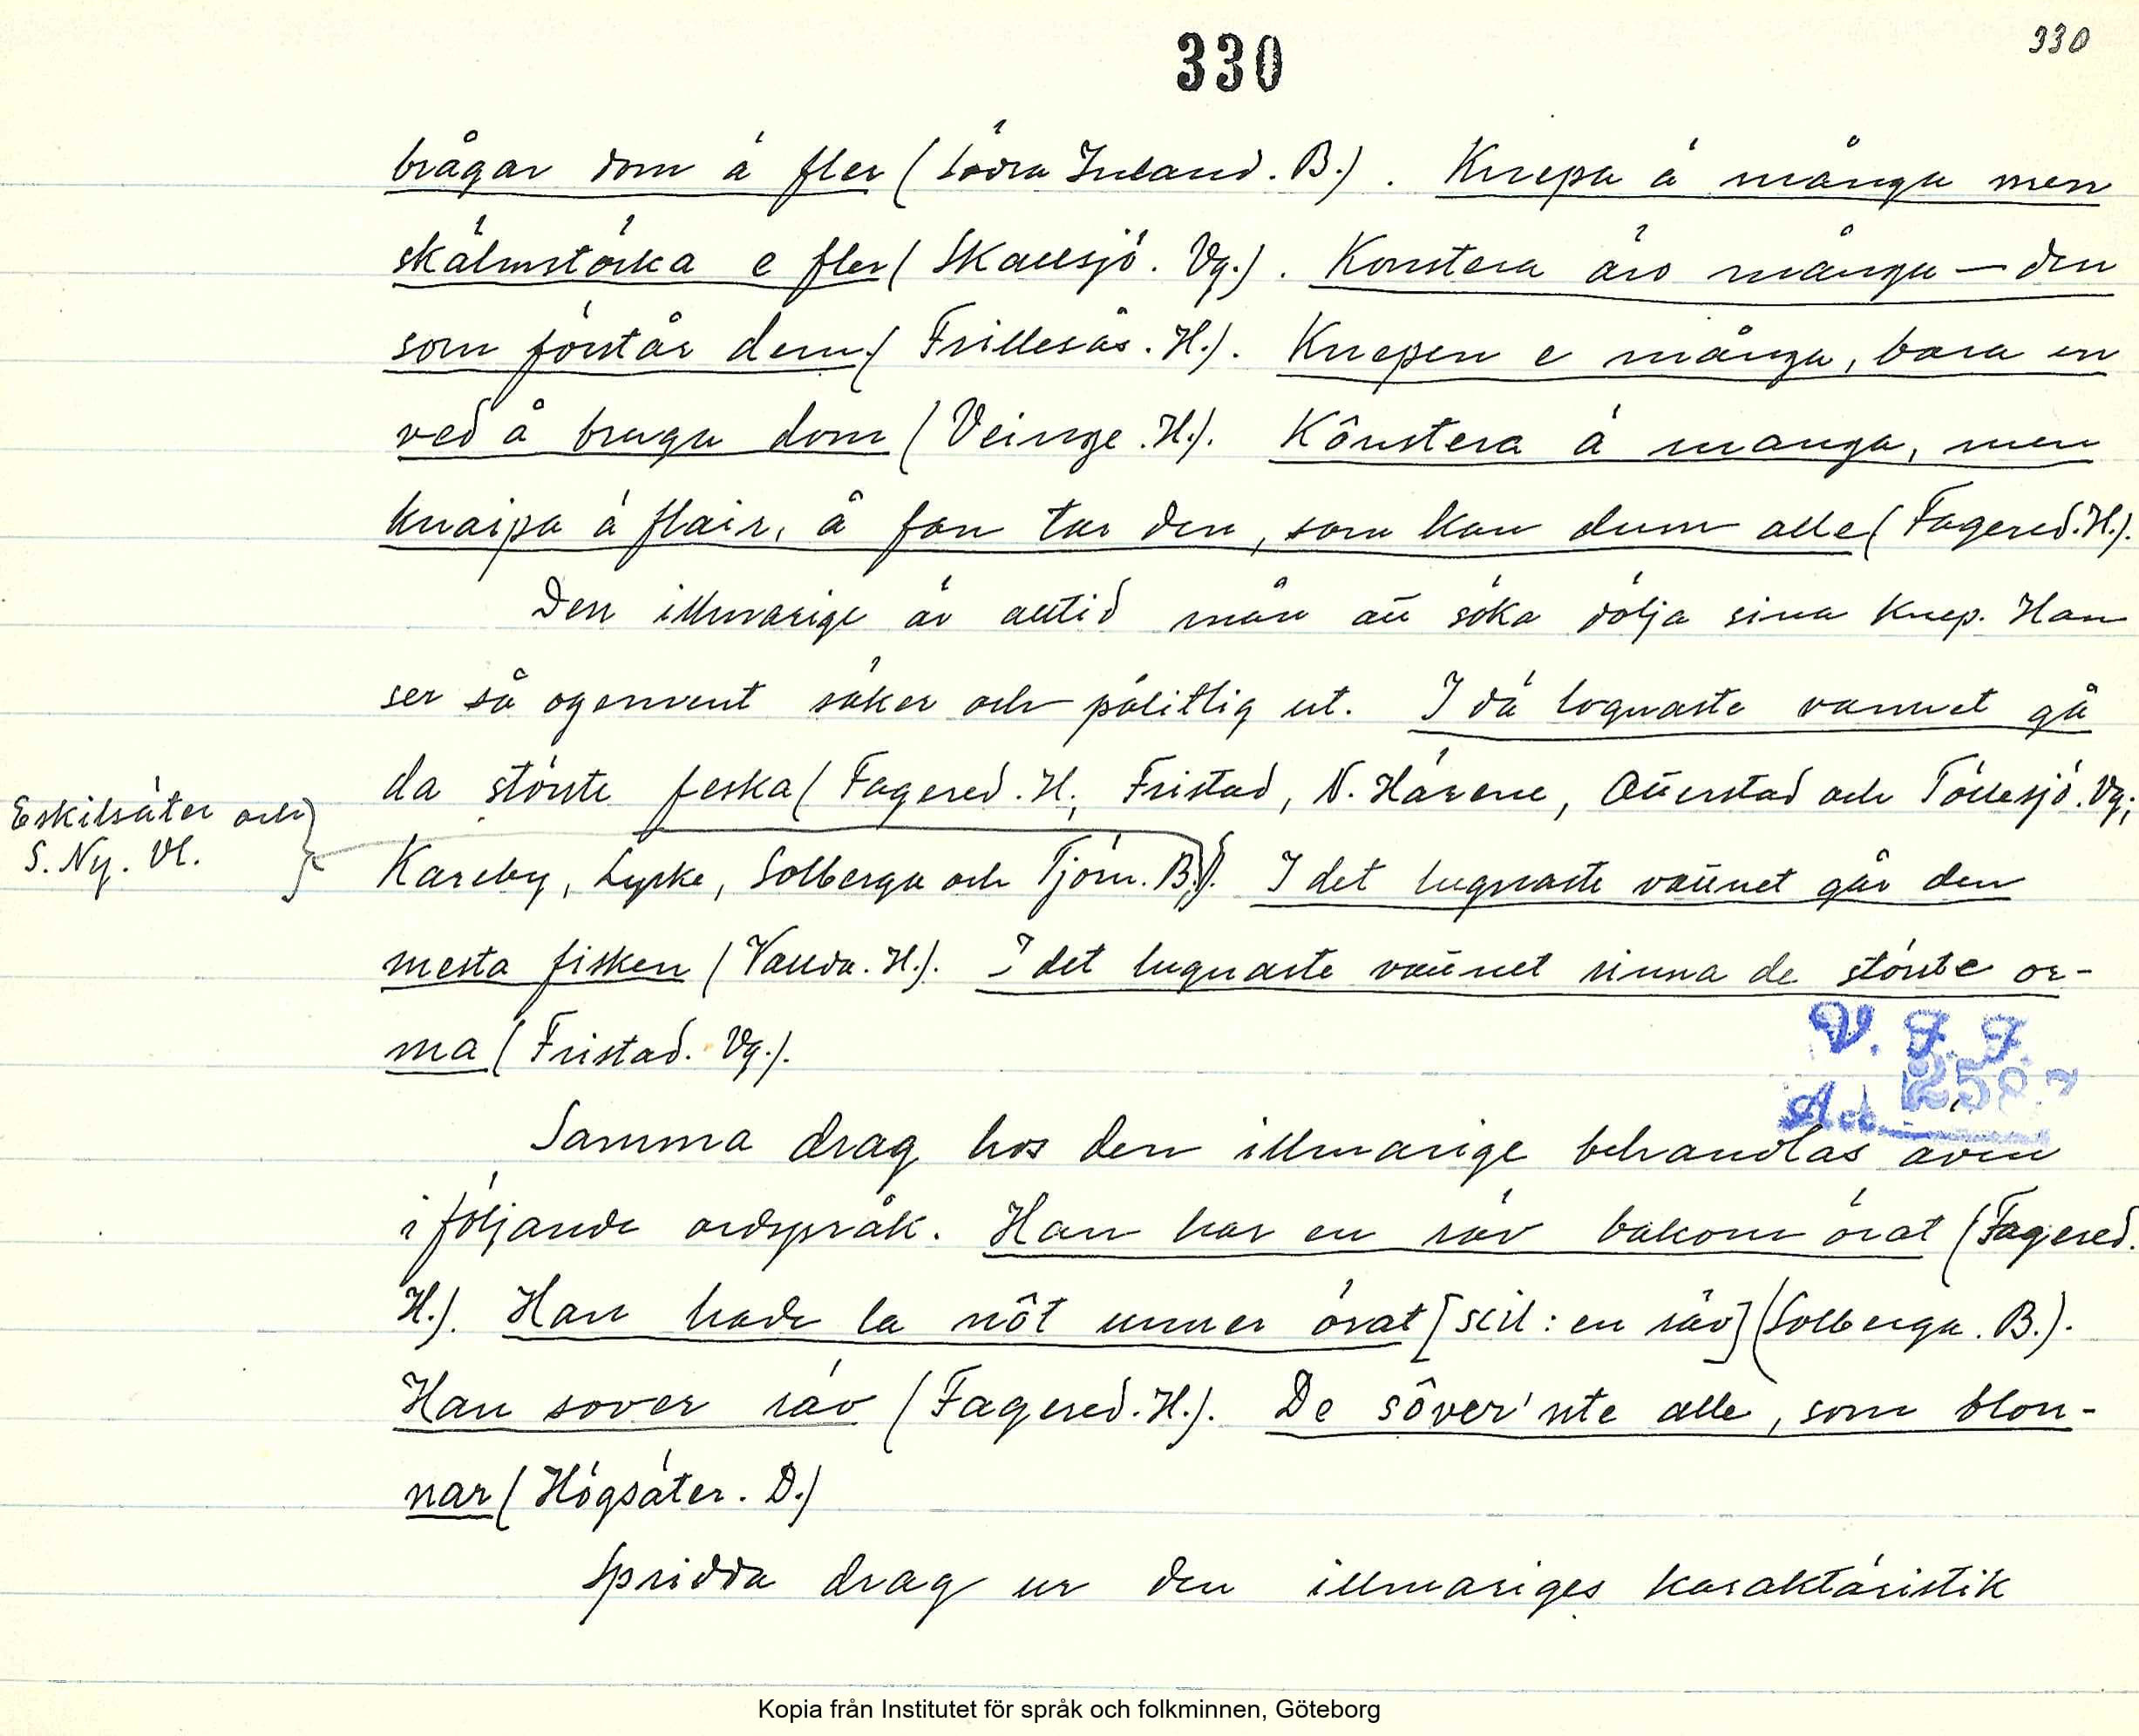 330
330
brågar som ä fler (Södra Inland. B.). Knepa ä många men
skälmstöcka e fler (Skallsjö. Vg.). Konstera äro många — den
som förstår dem (Frillesås. H.). Knepen e många, bara en
ved å bruga dom (Veinge. H.). Kônstera ä manga, men
knaipa ä flair, å fan tar den, som kan dum alle (Fagered. H.).
Den illmarige är alltid mån att söka dölja sina knep. Han
ser så ogement säker och pålitlig ut. I dä lognaste vannet gå
da störste feska (Fagered. H.; Fristad, N. Härene, Otterstad och Töllesjö. Vg.;
Eskilsäter och
S. Ny. Vl.
Kareby, Lycke, Solberga och Tjörn. B.). I det lugnaste vattnet går den
mesta fisken (Valda. H.). I det lugnaste vattnet rinna de störste or-
ma (Fristad. Vg.).
V. F. F.
Ad.
Samma drag hos den illmarige behandlas även
i följande ordspråk. Han har en räv bakom örat (Fagered.
H.). Han hade la nôt unner örat [scil: en räv] (Solberga. B.).
Han sover räv (Fagered. H.). De sôver'nte alle, som blon-
nar (Högsäter. D.)
Spridda drag ur den illmariges karaktäristik
Kopia från Institutet för språk och folkminnen, Göteborg